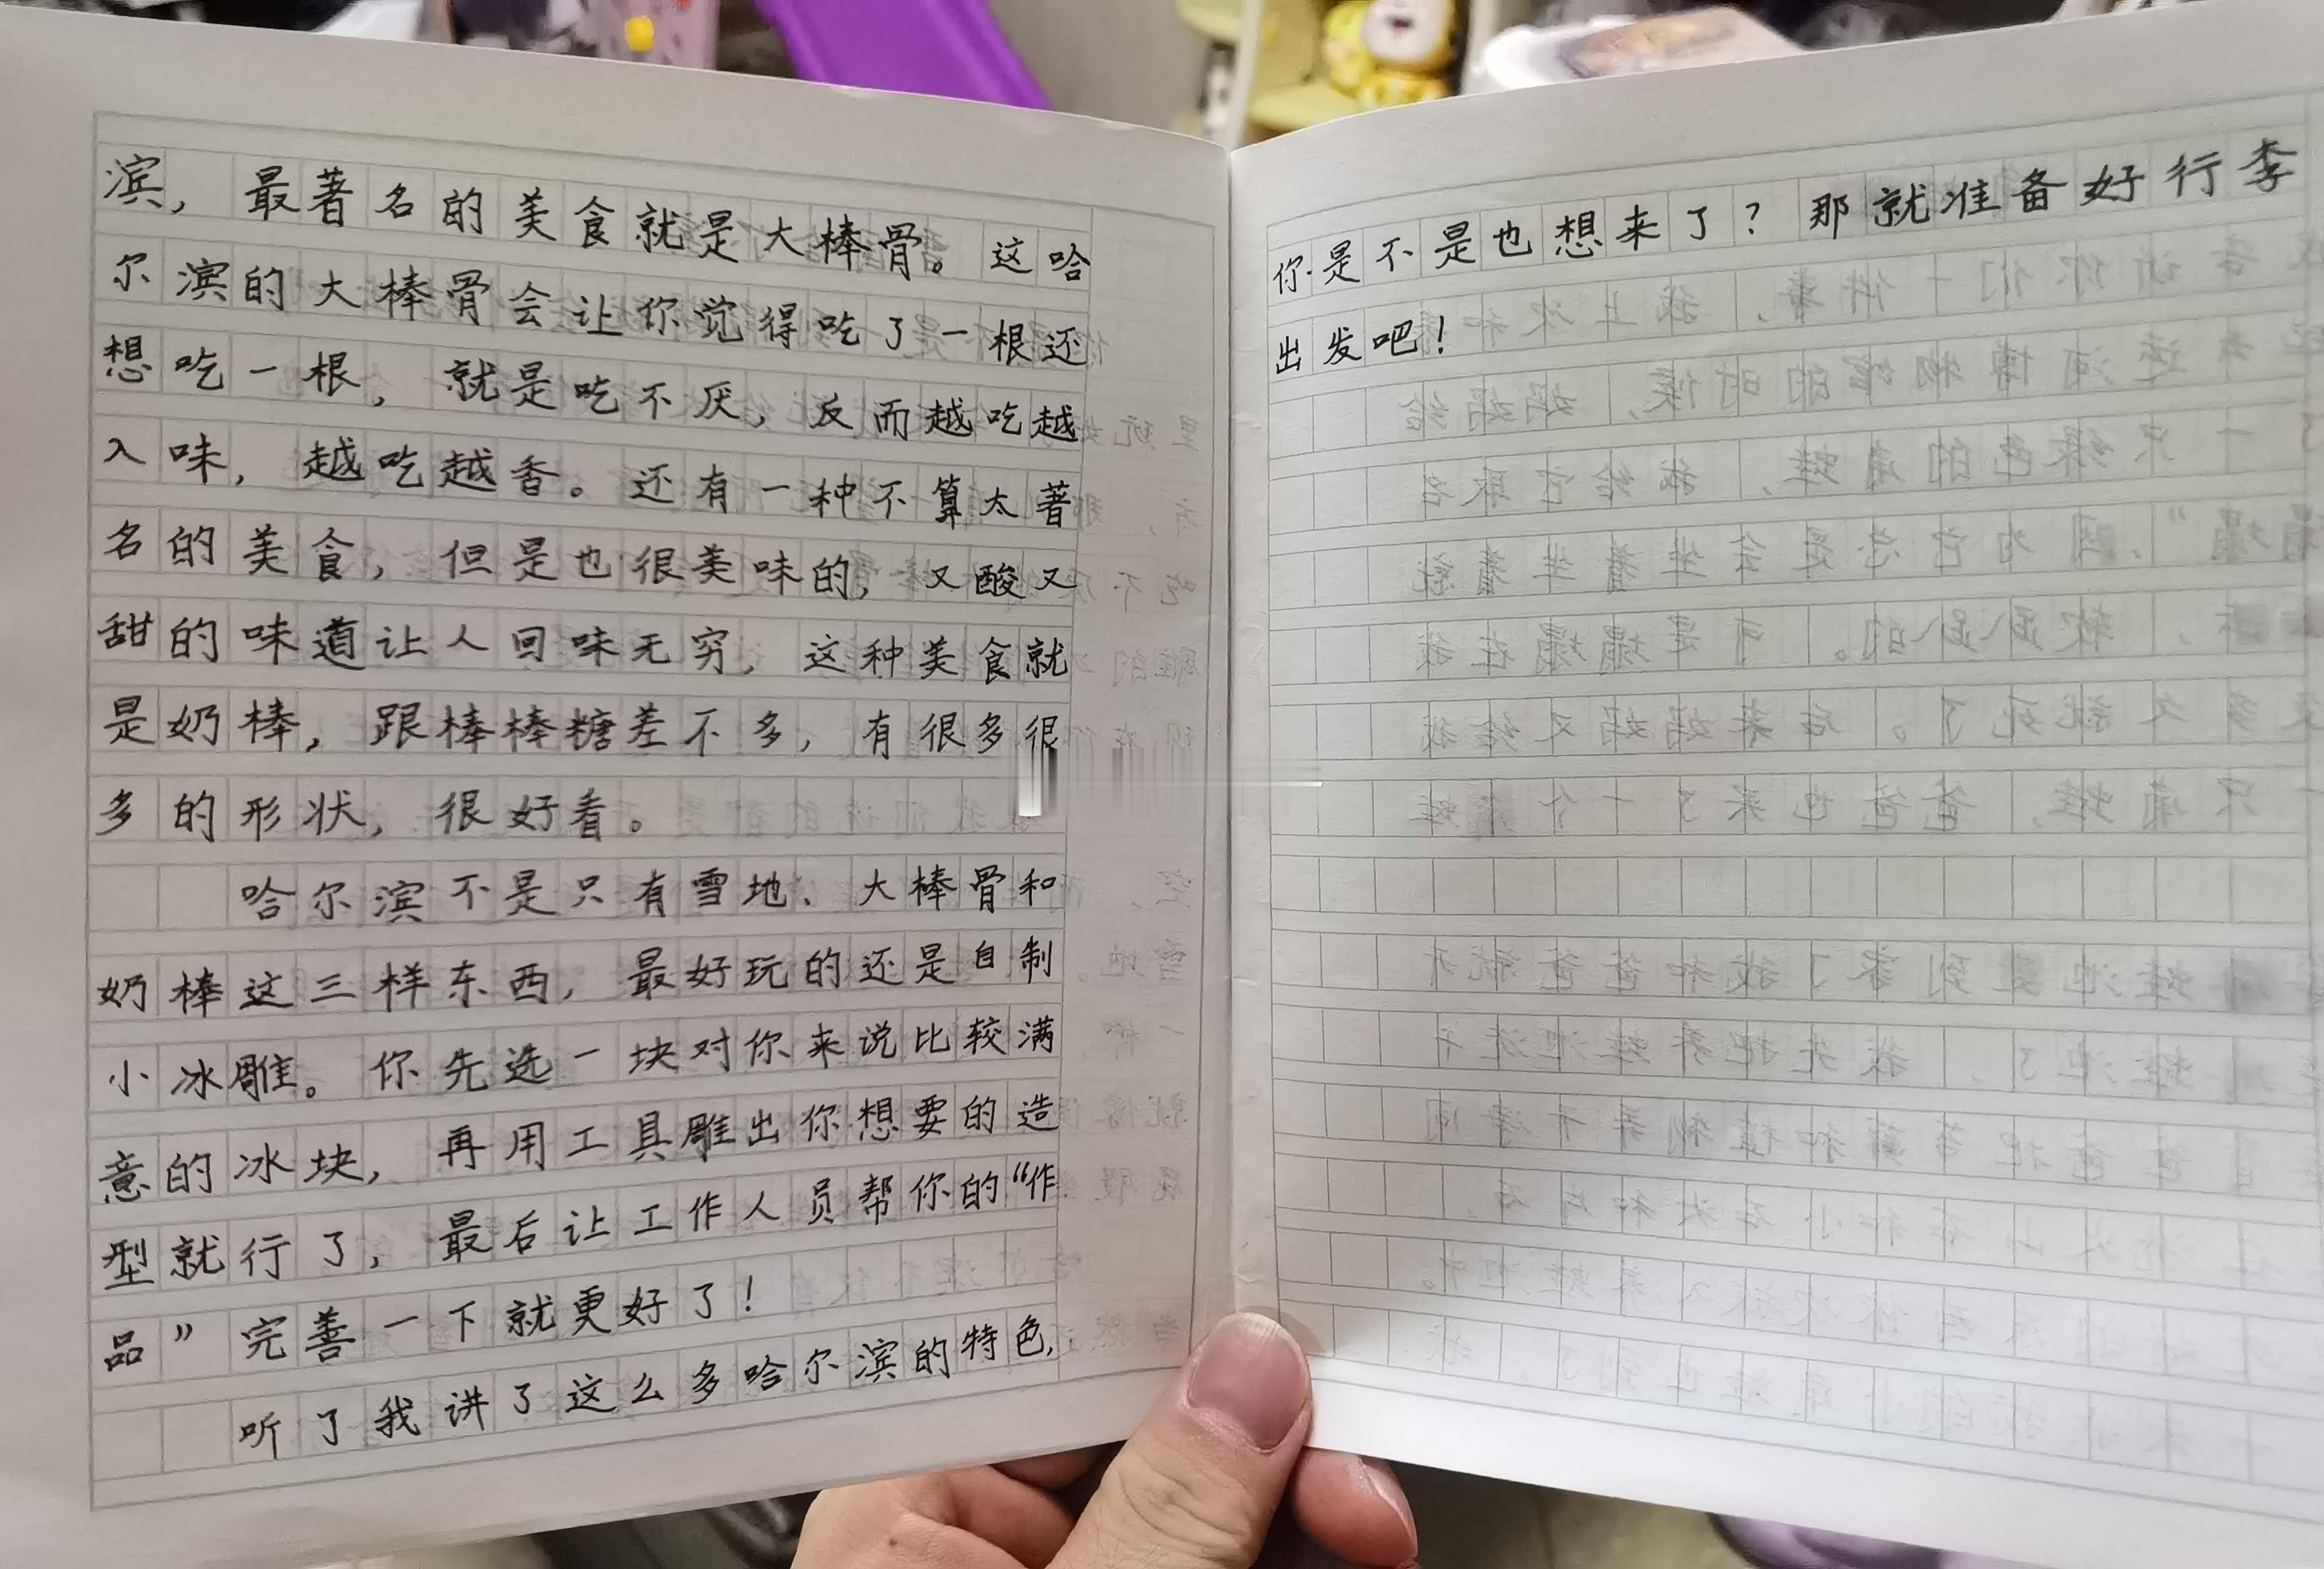 滨，最著名的美食就是大棒骨。这哈
尔滨的大棒骨会让你觉得吃了一根还
想吃一根，就是吃不厌，反而越吃越
入味，越吃越香。还有一种不算太著
名的美食，但是也很美味的，又酸又
甜的味道让人回味无穷，这种美食就
是奶棒，跟棒棒糖差不多，有很多很
多的形状，很好看。
哈尔滨不是只有雪地、大棒骨和
奶棒这三样东西，最好玩的还是自制
小冰雕。你先选一块对你来说比较满
意的冰块，再用工具雕出你想要的造
型就行了，最后让工作人员帮你的“作
品”完善一下就更好了！
听了我讲了这么多哈尔滨的特色，
你是不是也想来了？那就准备好行李
出发吧！